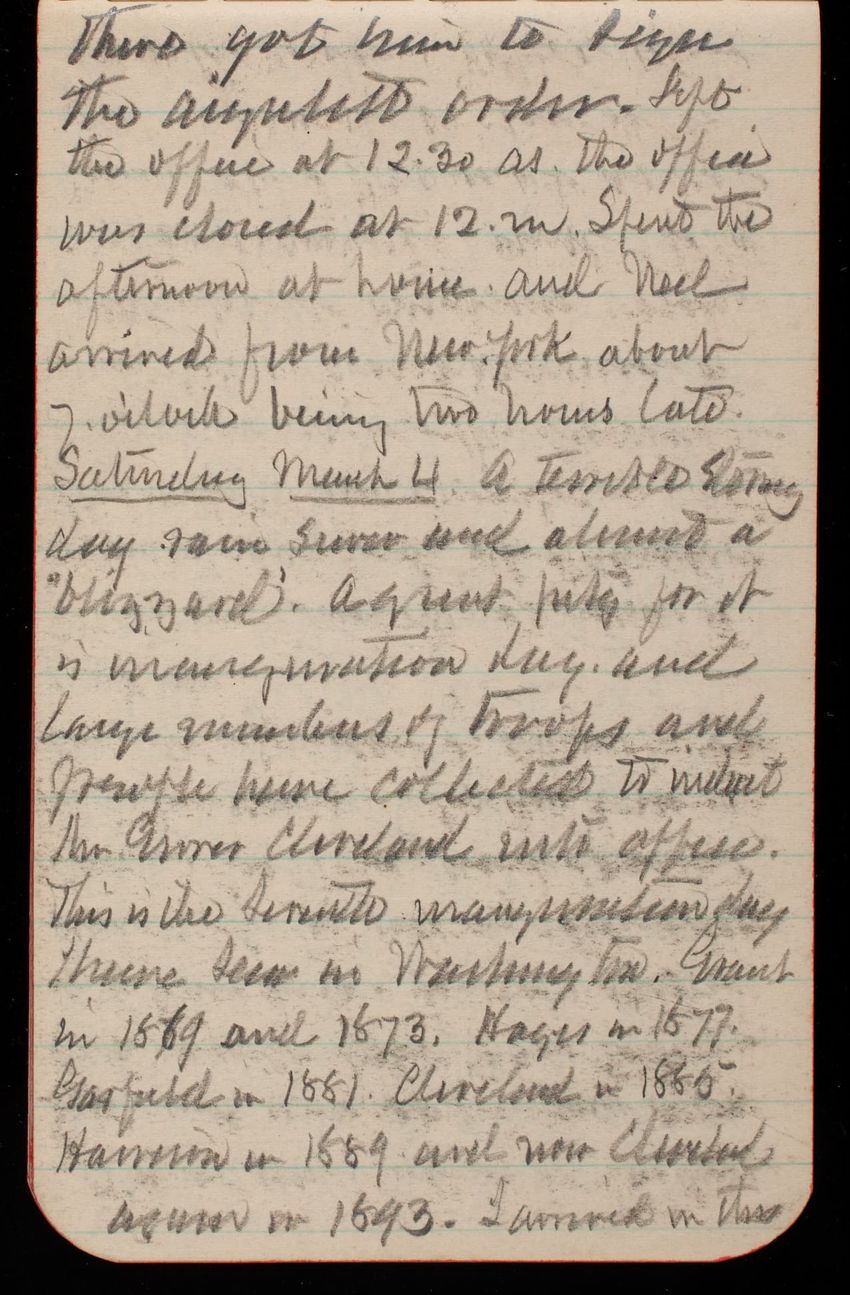 there got him to sign
the asphalt order. Left
the office at 12.30 as the office
was closed at 12. m. Spent the
afternoon at home and Neel
arrived from New York about
7. o'clock being two hours late.
Saturday March 4. A terrible stormy
day rain snow and almost a
"blizzard". A great pity for it
is inauguration day. and
large numbers of troops and
people have collected to induct
Mr Grover Cleveland into office.
This is the seventh inauguration day
I have seen in Washington. Grant
in 1869 and 1873. Hayes in 1877.
Garfield in 1881. Cleveland in 1885.
Harrison in 1889 and now Cleveland
again in 1893. I arrived in this